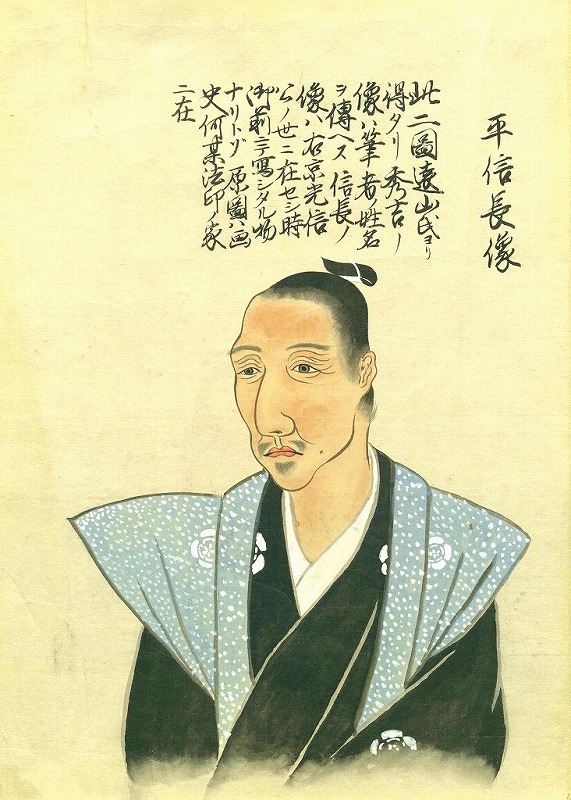 平信長像
此二圖遠山氏ヨリ
得タリ秀吉ノ
像ハ筆者ノ姓名
ヲ傳ヘス信長ノ
像ハ右京光信
公ノ世ニ在セシ時
御前ニテ寫シタル物
ナリトゾ原圖ハ画
史何某法印ノ家
ニ在